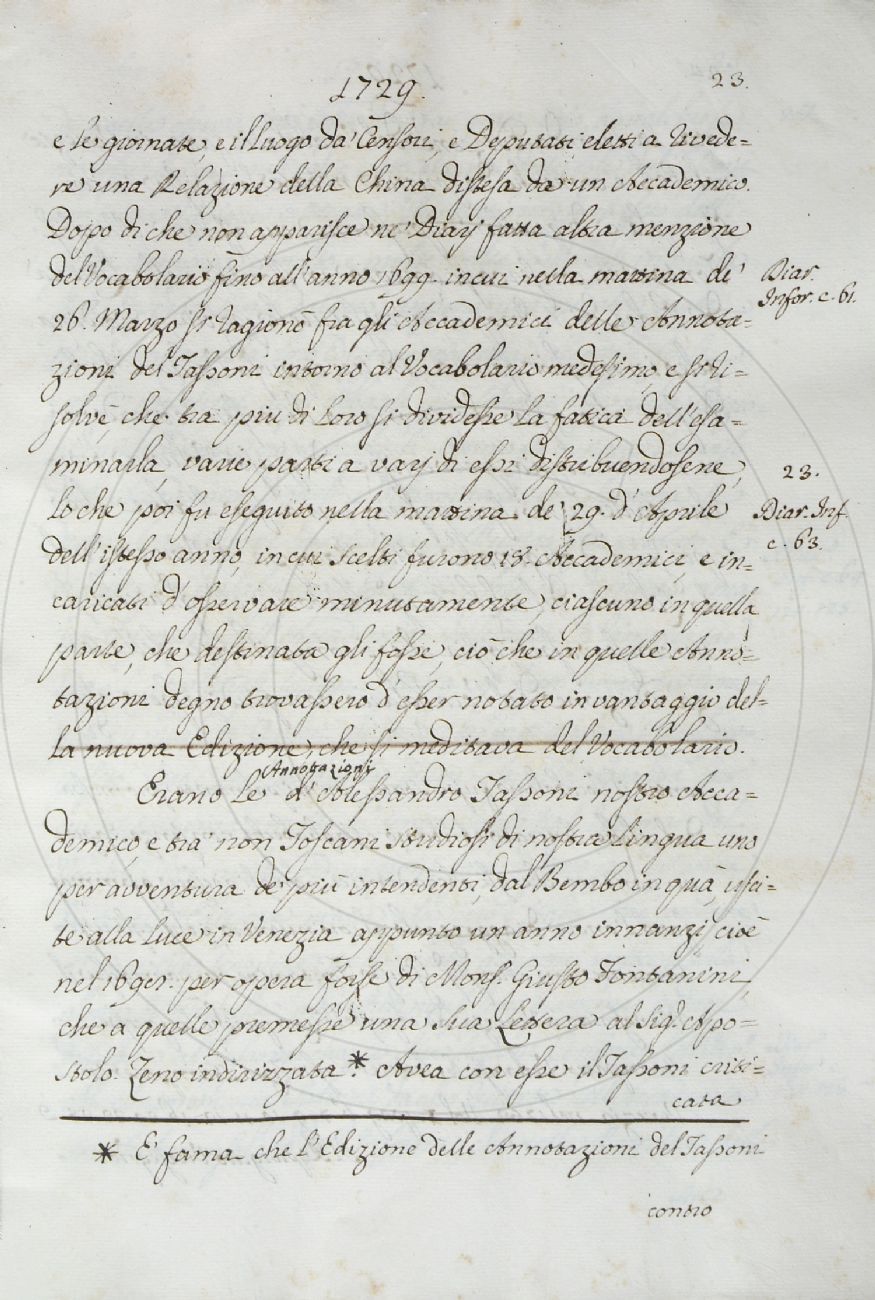 1729.
23.
e le giornate, e il luogo da' Censori, e Deputati eletti a rivede=
re una Relazione della China distesa da un Accademico.
Dopo di che non apparisce ne' Diarj fatta altra menzione
del Vocabolario fino all'anno 1699. in cui nella mattina de'
Diar.
Infor. c. 61.
26. Marzo si ragionò fra gli Accademici delle Annota=
zioni del Tassoni intorno al Vocabolario medesimo, e si ri=
solvè, che tra più di loro si dividesse la fatica dell'esa=
minarla, varie parti a varj di essi distribuendosene,
23.
lo che poi fu eseguito nella mattina de' 29. d'Aprile
Diar. Inf.
c. 63.
dell'istesso anno, in cui scelti furono 18. Accademici, e in=
caricati d'osservare minutamente, ciascuno in quella
parte, che destinata gli fosse, ciò che in quelle Anno=
tazioni degno trovassero d'esser notato in vantaggio del=
la nuova Edizione, che si meditava del Vocabolario.
Annotazioni
Erano le d'Alessandro Tassoni nostro Acca=
demico, e tra' non Toscani studiosi di nostra lingua uno
per avventura de' più intendenti, dal Bembo in quà, usci=
te alla luce in Venezia appunto un anno innanzi, cioè
nel per opera forse di Mons. Giusto Fontanini,
che a quelle premesse una sua Lettera al Sig. Apo=
stolo Zeno indirizzata.* Avea con esse il Tassoni criti=
cata
* E' fama che l'Edizione delle Annotazioni del Tassoni
contro